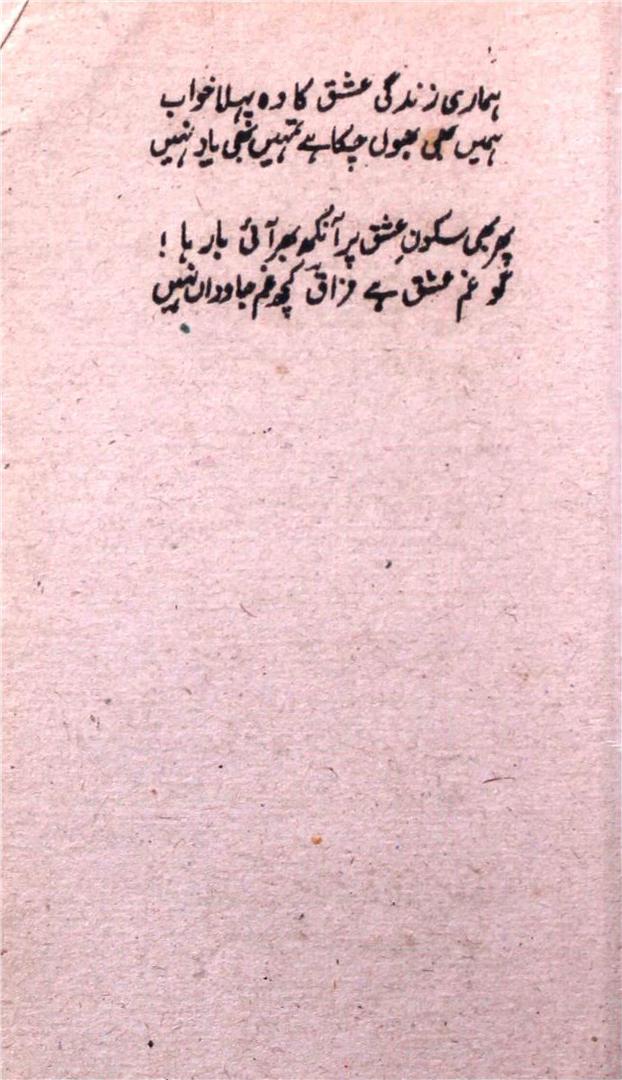 ہماری زندگی عشق کا وہ پہلا خواب
ہمیں بھی بھول چکا ہے تمہیں بھی یاد نہیں
پھر بھی سکونِ عشق پر آنکھ بھر آئی بارہا !
گو غم عشق ہے فراقؔ کچھ غم جاوداں نہیں